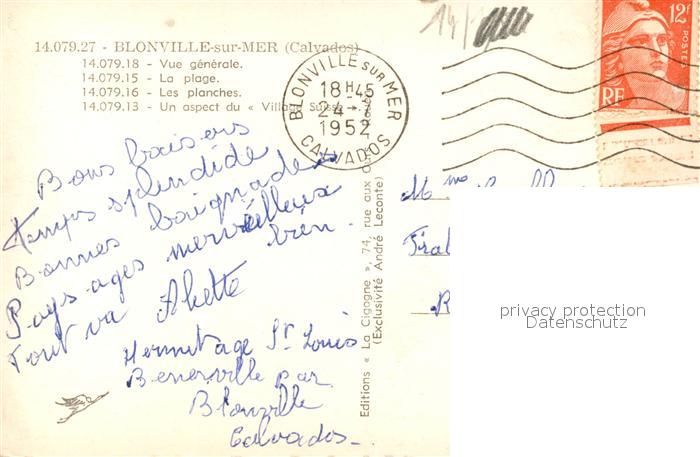 14.079.27 - BLONVILLE-sur-MER (Calvados)
14.079.18 - Vue générale.
14.079.15 - La plage.
14.079.16 - Les planches.
14.079.13 - Un aspect du « Village Suisse ».
BLONVILLE SUR MER
18H-45
24-7
1952
CALVADOS
12F
POSTES
RF
Bons baisers
Temps splendide
Bonnes baignades
Paysages merveilleux
Tout va bien.
Hermitage St Louis
Benerville par
Blonville
Calvados-
Editions « La Cigogne », 74, rue aux
(Exclusivité André Leconte)
Mme
privacy protection
Datenschutz